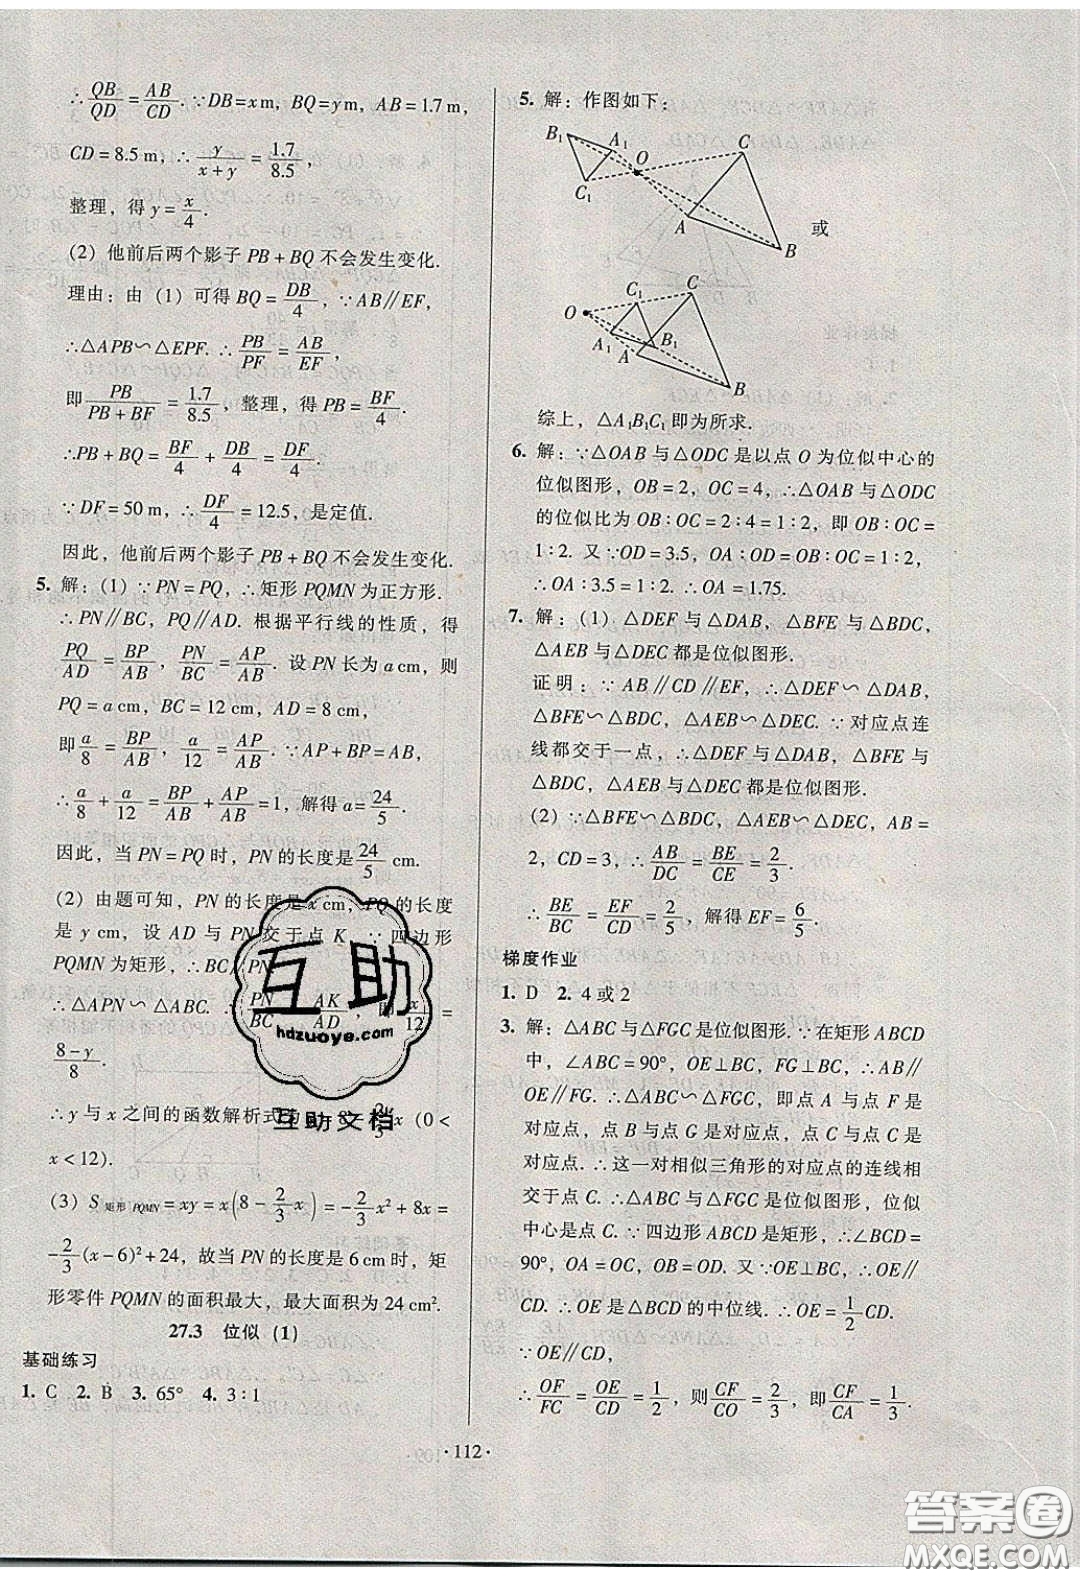 ∴ QB/QD = AB/CD. ∵ DB = x m, BQ = y m, AB = 1.7 m,
CD = 8.5 m, ∴ y/(x+y) = 1.7/8.5,
整理，得 y = x/4.
(2) 他前后两个影子 PB + BQ 不会发生变化.
理由：由 (1) 可得 BQ = DB/4, ∵ AB∥EF,
∴△APB∽△EPF. ∴ PB/PF = AB/EF,
即 PB/(PB+BF) = 1.7/8.5，整理，得 PB = BF/4.
∴PB + BQ = BF/4 + DB/4 = DF/4.
∵ DF = 50 m, ∴ DF/4 = 12.5，是定值.
因此，他前后两个影子 PB + BQ 不会发生变化.
5. 解：(1) ∵ PN = PQ, ∴ 矩形 PQMN 为正方形.
∴ PN∥BC, PQ∥AD. 根据平行线的性质，得
PQ/AD = BP/AB, PN/BC = AP/AB. 设 PN 长为 a cm，则
PQ = a cm, BC = 12 cm, AD = 8 cm,
即 a/8 = BP/AB, a/12 = AP/AB. ∵ AP + BP = AB,
∴ a/8 + a/12 = BP/AB + AP/AB = 1，解得 a = 24/5.
因此，当 PN = PQ 时，PN 的长度是 24/5 cm.
(2) 由题可知，PN 的长度是 x cm, PQ 的长度
是 y cm，设 AD 与 PN 交于点 K. ∵ 四边形
PQMN 为矩形，∴ BC∥PN
∴ △APN ∽ △ABC. ∴ PN/BC = AK/AD, 即 x/12 =
(8−y)/8.
∴ y 与 x 之间的函数解析式为 y = 8 − 2/3 x (0 <
x < 12).
(3) S矩形PQMN = xy = x(8 − 2/3 x) = −2/3 x² + 8x =
−2/3 (x−6)² + 24，故当 PN 的长度是 6 cm 时，矩
形零件 PQMN 的面积最大，最大面积为 24 cm².
27.3 位似 (1)
基础练习
1. C 2. B 3. 65° 4. 3∶1
5. 解：作图如下：
B₁ A₁ O C
C₁ A B 或
O C₁ C
A₁ A B₁ B
综上，△A₁B₁C₁ 即为所求.
6. 解：∵ △OAB 与△ODC 是以点 O 为位似中心的
位似图形，OB = 2, OC = 4, ∴ △OAB 与△ODC
的位似比为 OB∶OC = 2∶4 = 1∶2，即 OB∶OC =
1∶2. 又∵OD = 3.5, OA∶OD = OB∶OC = 1∶2,
∴ OA∶3.5 = 1∶2. ∴ OA = 1.75.
7. 解：(1) △DEF 与△DAB, △BFE 与△BDC,
△AEB 与△DEC 都是位似图形.
证明：∵ AB∥CD∥EF, ∴ △DEF ∽ △DAB,
△BFE∽△BDC, △AEB∽△DEC. ∵ 对应点连
线都交于一点，∴ △DEF 与△DAB, △BFE 与
△BDC, △AEB 与△DEC 都是位似图形.
(2) ∵△BFE∽△BDC, △AEB∽△DEC, AB =
2, CD = 3, ∴ AB/DC = BE/CE = 2/3.
∴ BE/BC = EF/CD = 2/5, 解得 EF = 6/5.
梯度作业
1. D 2. 4 或 2
3. 解：△ABC 与△FGC 是位似图形. ∵ 在矩形 ABCD
中，∠ABC = 90°, OE⊥BC, FG⊥BC, ∴ AB∥
OE∥FG. ∴ △ABC∽△FGC，即点 A 与点 F 是
对应点，点 B 与点 G 是对应点，点 C 与点 C 是
对应点. ∴ 这一对相似三角形的对应点的连线相
交于点 C. ∴ △ABC 与△FGC 是位似图形，位似
中心是点 C. ∵ 四边形 ABCD 是矩形，∴ ∠BCD =
90°, OA = OC, OB = OD. 又∵OE⊥BC, ∴ OE∥
CD. ∴ OE 是△BCD 的中位线. ∴ OE = 1/2 CD.
∵OE∥CD,
∴ OF/FC = OE/CD = 1/2, 则 CF/CO = 2/3, 即 CF/CA = 1/3.
· 112 ·
互助
hdzuoye.com
互助文档
答案圈
MXQE.COM